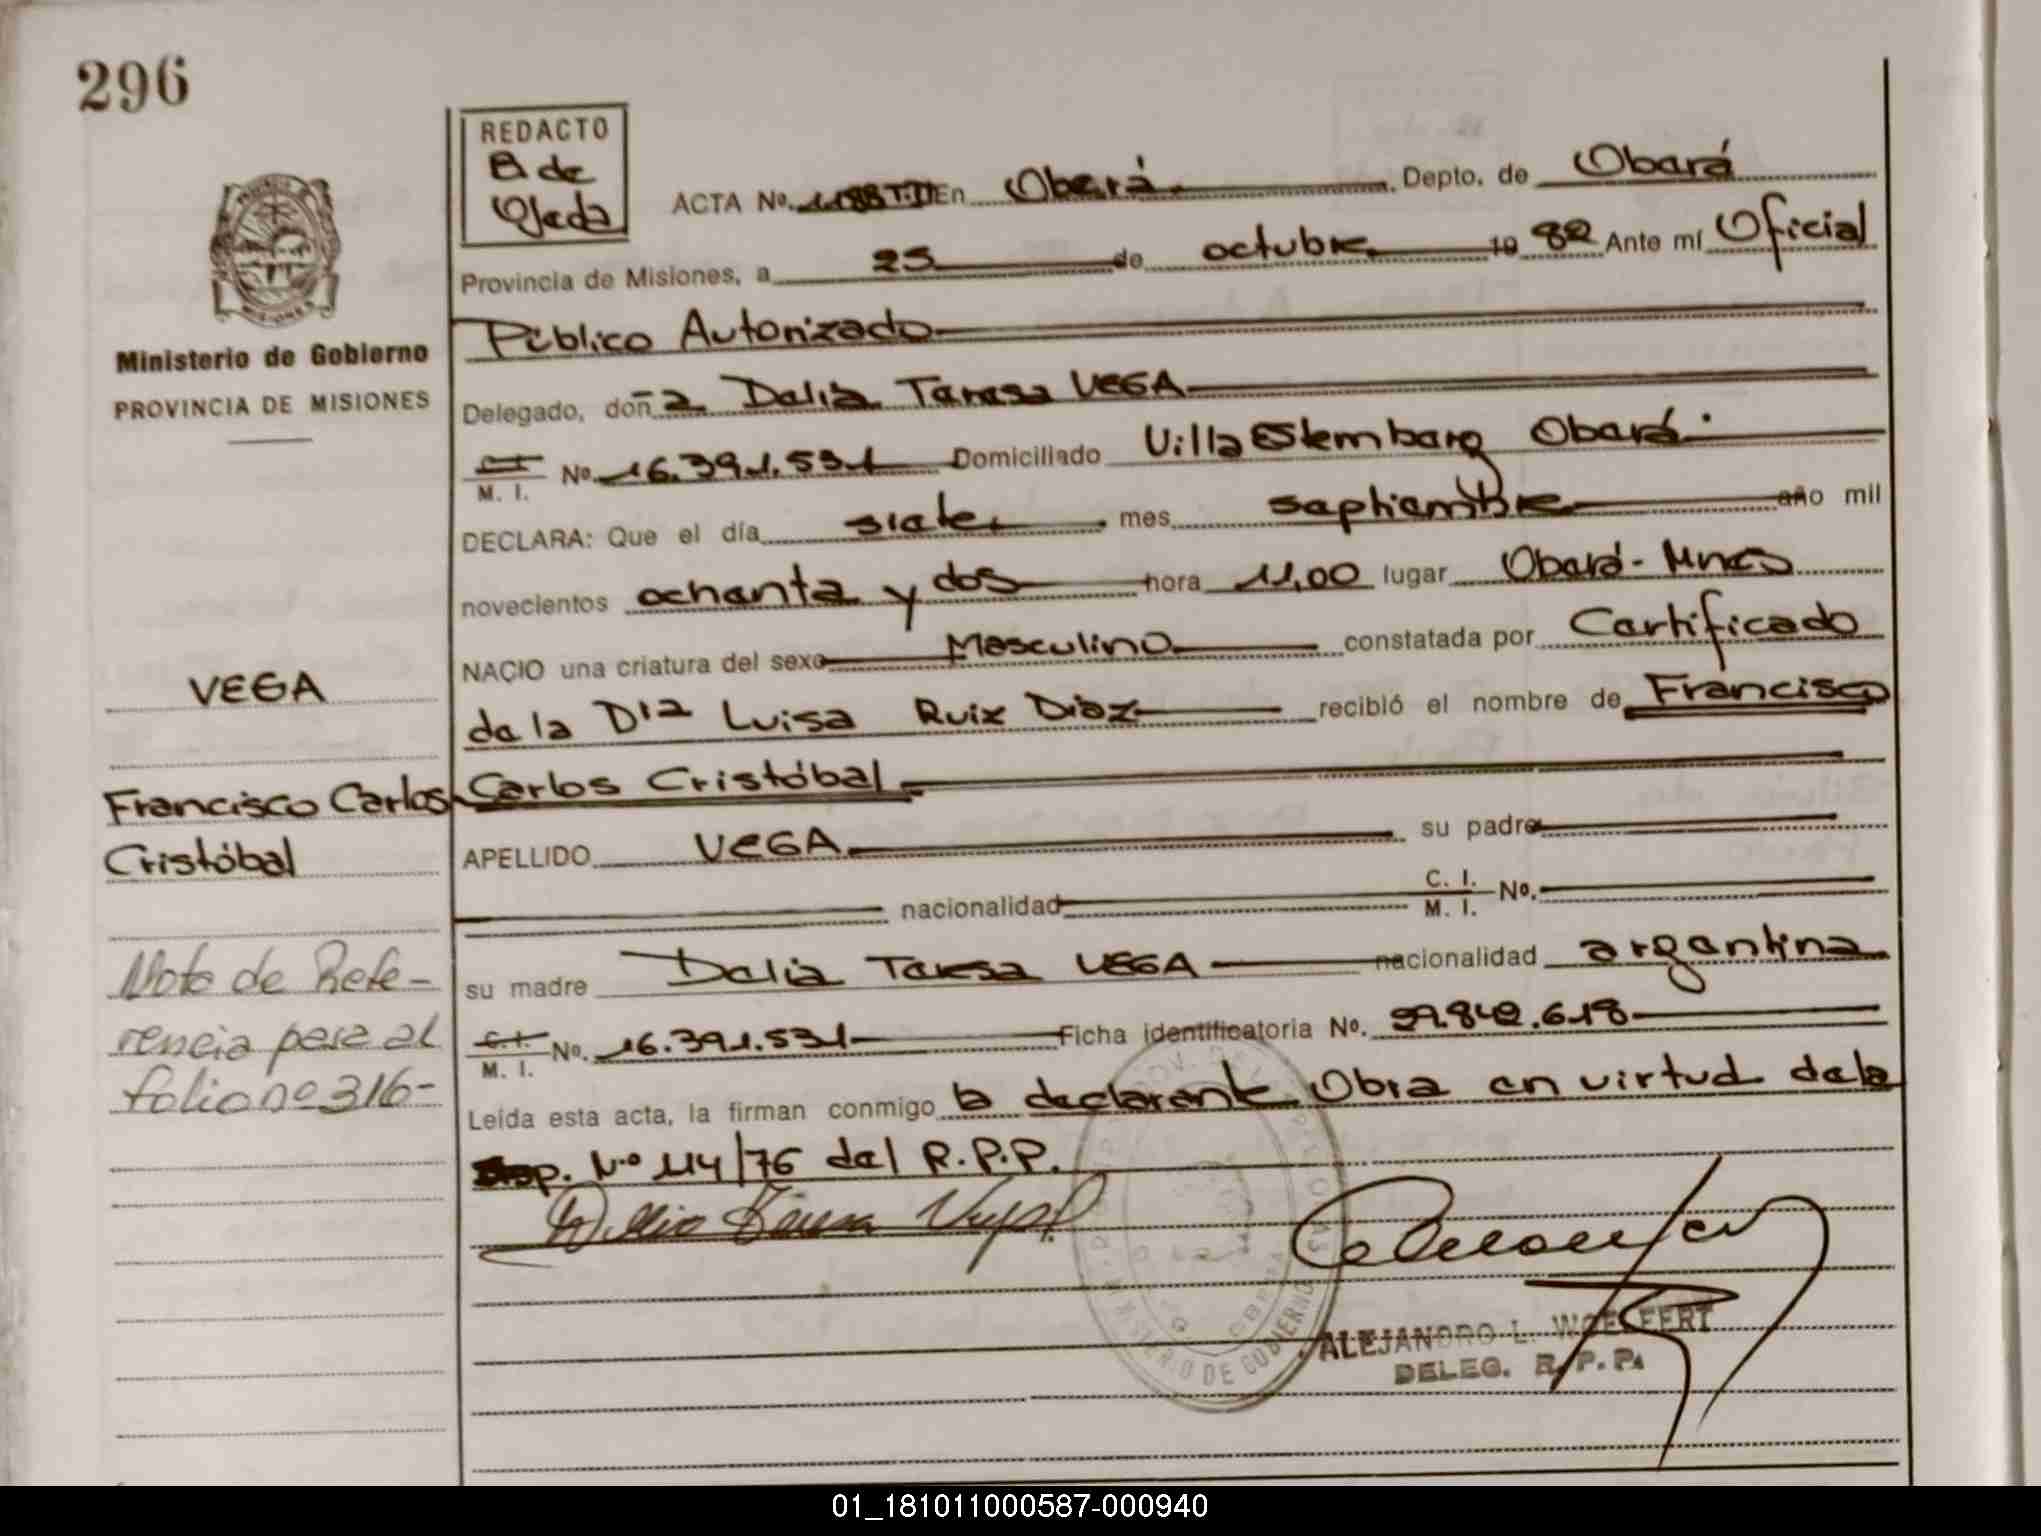 296
REDACTO
B de
Ojeda
ACTA No. 1188 T.II En Oberá Depto. de Oberá
Provincia de Misiones, a 25 de octubre 19 82 Ante mí Oficial
Público Autorizado
Ministerio de Gobierno
PROVINCIA DE MISIONES
Delegado, doña Delia Teresa VEGA
C.I.
M. I. No. 16.391.531 Domiciliado Villa Stemberg Oberá
DECLARA: Que el día siete mes septiembre año mil
novecientos ochenta y dos hora 11,00 lugar Oberá-Mnes
NACIO una criatura del sexo Masculino constatada por Certificado
de la Dra Luisa Ruiz Diaz recibió el nombre de Francisco
Carlos Cristóbal
APELLIDO VEGA su padre
nacionalidad C. I.
M. I. No.
su madre Delia Teresa VEGA nacionalidad argentina
C.I.
M. I. No. 16.391.531 Ficha identificatoria No. 29.842.618
Leída esta acta, la firman conmigo la declarante. Obra en virtud de la
Disp. N° 114/76 del R.P.P.
VEGA
Francisco Carlos
Cristóbal
Nota de Refe-
rencia pasa al
folio nº 316-
MINISTERIO DE GOBIERNO
ALEJANDRO L. WOELFERT
DELEG. R.P.P.
01_181011000587-000940